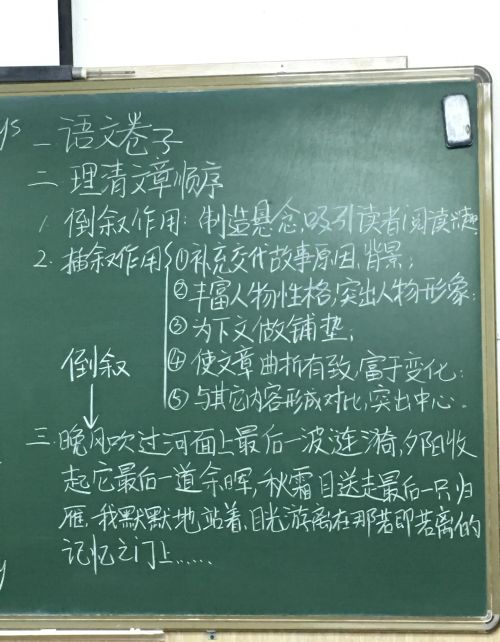 一 语文卷子
二 理清文章顺序
1. 倒叙作用: 制造悬念,吸引读者阅读兴趣
2. 插叙作用 ①补充交代故事原因,背景;
②丰富人物性格,突出人物形象;
③为下文做铺垫;
④使文章曲折有致,富于变化;
⑤与其它内容形成对比,突出中心.
倒叙
三. 晚风吹过河面上最后一波涟漪,夕阳收
起它最后一道余晖,秋霜目送走最后一只归
雁,我默默地站着,目光游离在那若即若离的
记忆之门上……